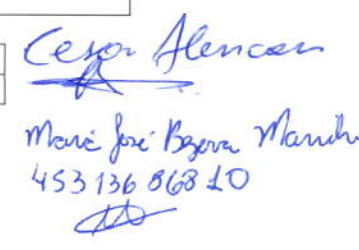 Cesar Alencar
Maria José Bezerra
453 136 868 10